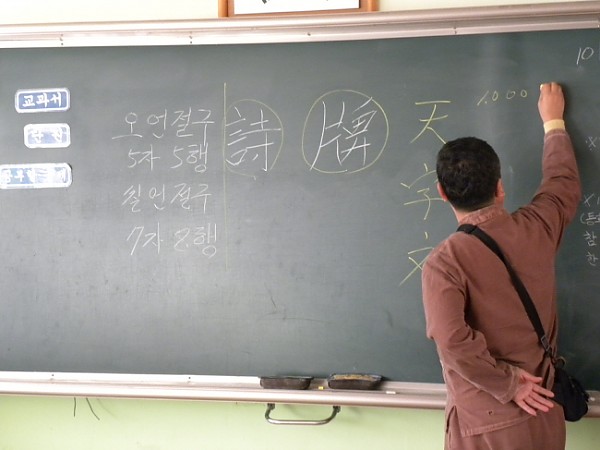 교과서
오언절구
5자 5행
칠언절구
7자 8행
詩 牌
天字文
1.000
10
참
한